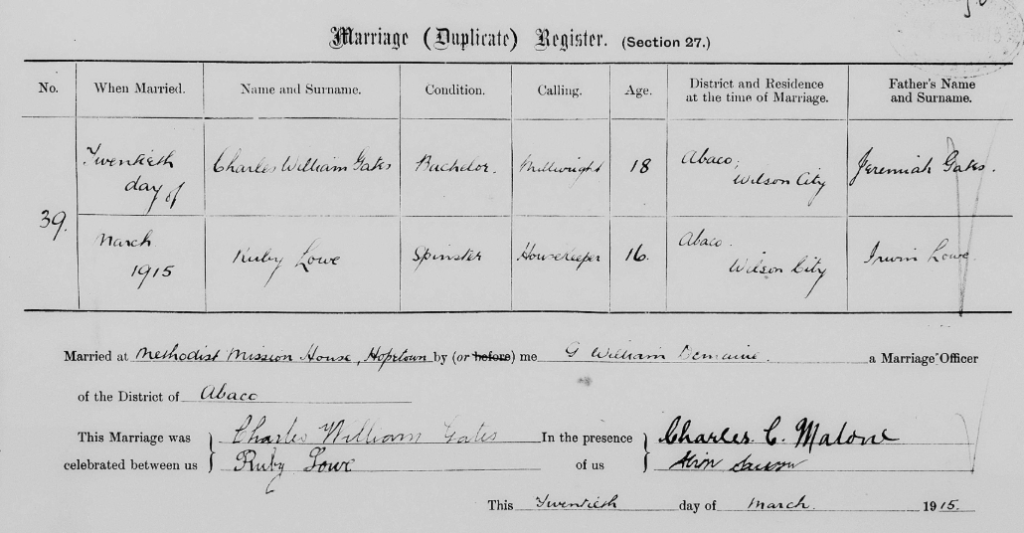 Marriage (Duplicate) Register. (Section 27.)
No. When Married. Name and Surname. Condition. Calling. Age. District and Residence at the time of Marriage. Father's Name and Surname.
39. Twentieth day of Charles William Gates Bachelor. Millwright 18 Abaco; Wilson City Jeremiah Gates.
March 1915 Ruby Lowe Spinster Housekeeper 16. Abaco. Wilson City Irwin Lowe.
Married at Methodist Mission House, Hopetown by (or before) me G William Demaine. a Marriage Officer
of the District of Abaco
This Marriage was } Charles William Gates In the presence } Charles C. Malone
celebrated between us } Ruby Lowe of us }
This Twentieth day of March. 1915.